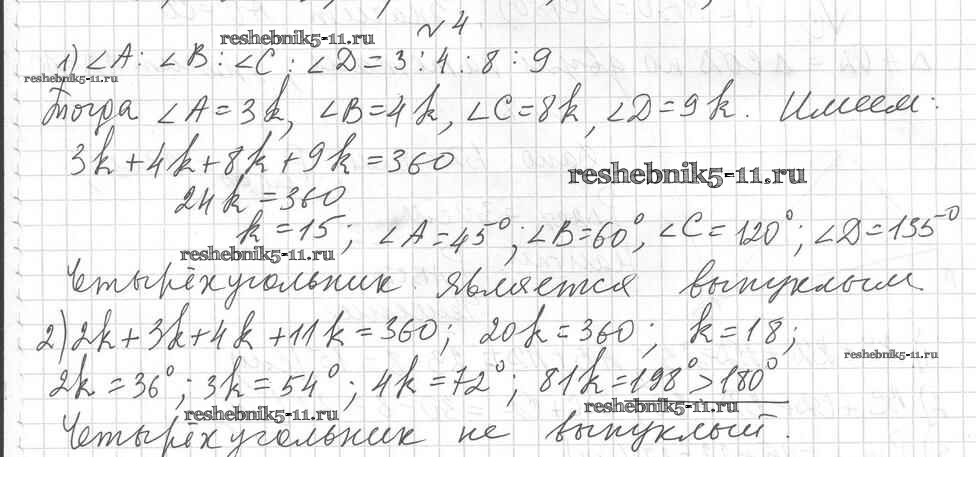 № 4
reshebnik5-11.ru
1) ∠A : ∠B : ∠C : ∠D = 3 : 4 : 8 : 9
reshebnik5-11.ru
Тогда ∠A = 3k, ∠B = 4k, ∠C = 8k, ∠D = 9k. Имеем:
3k + 4k + 8k + 9k = 360
reshebnik5-11.ru
24k = 360
k = 15; ∠A = 45°; ∠B = 60°, ∠C = 120°; ∠D = 135°
reshebnik5-11.ru
Четырёхугольник является выпуклым
2) 2k + 3k + 4k + 11k = 360; 20k = 360; k = 18;
reshebnik5-11.ru
2k = 36°; 3k = 54°; 4k = 72°; 81k = 198° > 180°
reshebnik5-11.ru
reshebnik5-11.ru
Четырёхугольник не выпуклый.